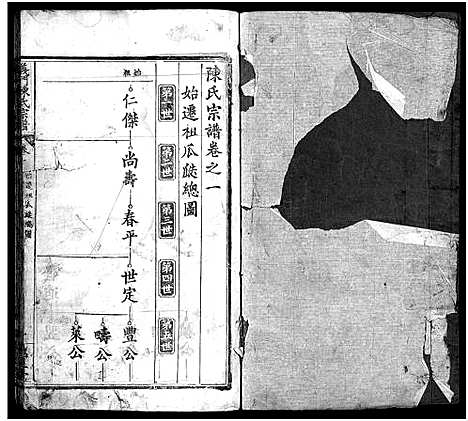 陳氏宗譜卷之一
始遷祖瓜瓞總圖
第一世
第二世
第三世
第四世
第五世
始祖
仁傑
尚壽
春平
世定
豐公
疇公
萊公